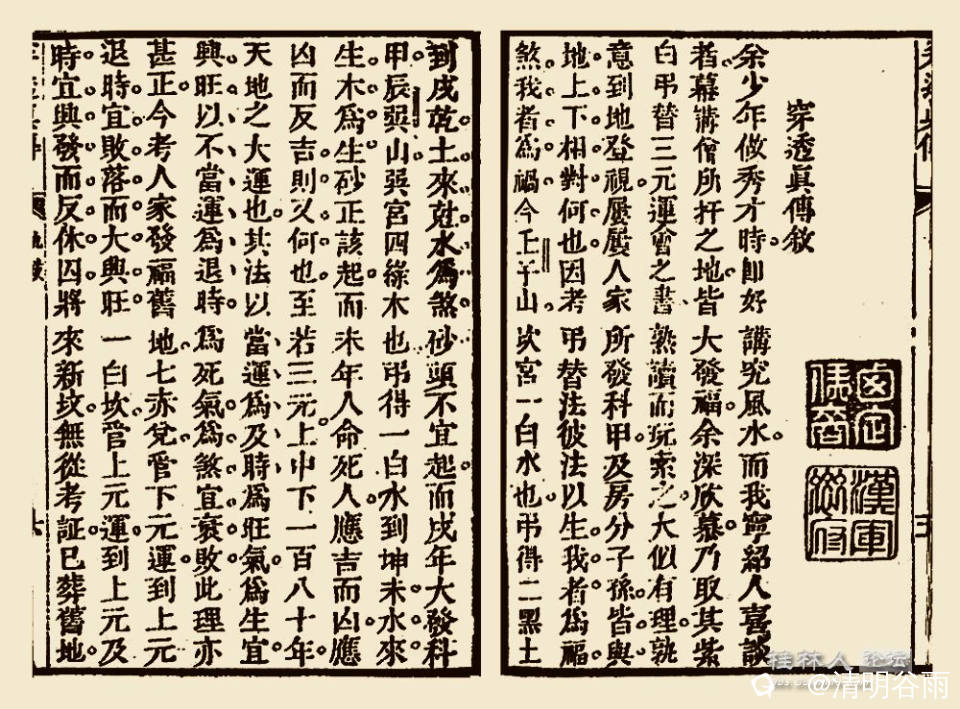 穿透眞傳敘
余少年做秀才時卽好講究風水而我寧紹人喜談
者慕講僧所扞之地皆大發福余深欣慕乃取其紫
白弔替三元運會之書熟讀而玩索之大似有理孰
意到地登視屢屢人家所發科甲及房分子孫皆與
地上下相對何也因考弔替法彼法以生我者爲福
煞我者爲禍今上子山坎宮一白水也弔得二黑土
到戌乾土來尅水爲煞砂頭不宜起而戌年大發科
甲辰巽山巽宮四綠木也弔得一白水到坤未水來
生木爲生砂正該起而未年人命死人應吉而凶應
凶而反吉則又何也至若三元上中下一百八十年
天地之大運也其法以當運爲及時爲旺氣爲生宜
興旺以不當運爲退時爲死氣爲煞宜衰敗此理亦
甚正今考人家發福舊地七赤兌管下元運到上元
退時宜敗落而大興旺一白坎管上元運到上元及
時宜興發而反休囚將來新坟無從考証已葬舊地
桂林人 论坛
@清明谷雨